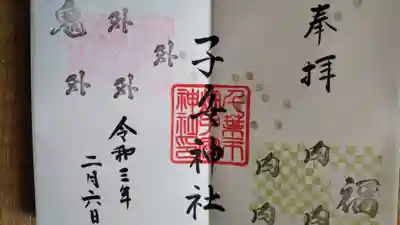 奉拝
福
内
内
内
内
子安神社
千葉市
子安
神社印
令和三年
二月六日
鬼
外
外
外
外
外